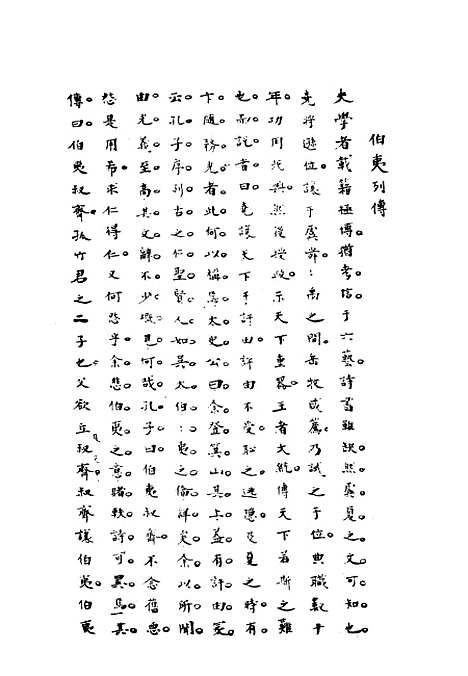 伯夷列傳
夫學者載籍極博。猶考信。于六藝。詩書雖缺。然虞。夏。之文。可知。也。
堯將遜位。讓于虞舜。: 禹之間。岳牧咸薦。乃試之于位。典職數十
年。功用既興。然後授政。示天下重器。王者大統。傳天下若斯之難
也。而說者曰。堯讓天下于許由。許由不受。恥之。逃隱。及夏之時。有。
卞。隨。務。光。者。此。何。以稱。焉。太史公曰。余登箕山。其。上。蓋。有。許由。冢。
云。孔。子。序。列。古。之。仁。聖。賢。人。如吳。太。伯。: 夷。之。倫。詳。矣。余。以。所。聞。
由。光。義。至高。其。文。辭。不。少。概。見。何。哉。孔。子。曰。伯夷叔齊。不念舊惡。
怨是用希。求仁得仁。又何怨乎。余。悲。伯。夷。之。意。睹軼。詩。可。異。焉。其。
傳。曰。伯夷叔齊。孤竹君之二子也。父欲立叔齊。及父卒叔齊讓伯夷。伯夷